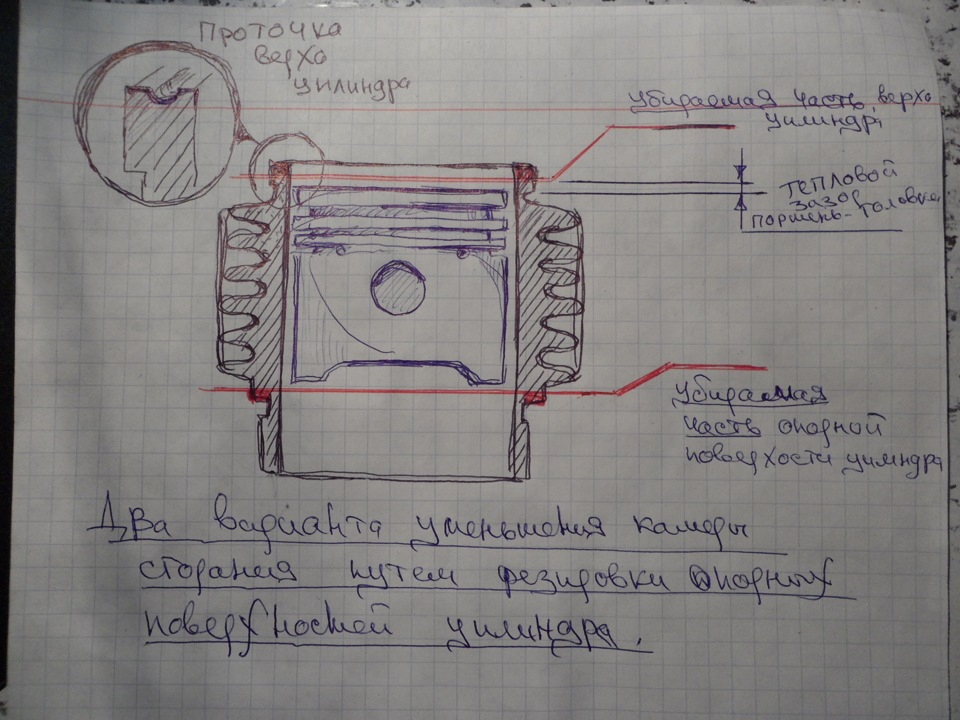 Проточка
верха
цилиндра
убираемая часть верха
цилиндра
тепловой
зазор
поршень-головка
убираемая
часть опорной
поверхости цилиндра
Два варианта уменьшения камеры
сгорания путем фрезировки опорных
поверхностей цилиндра.